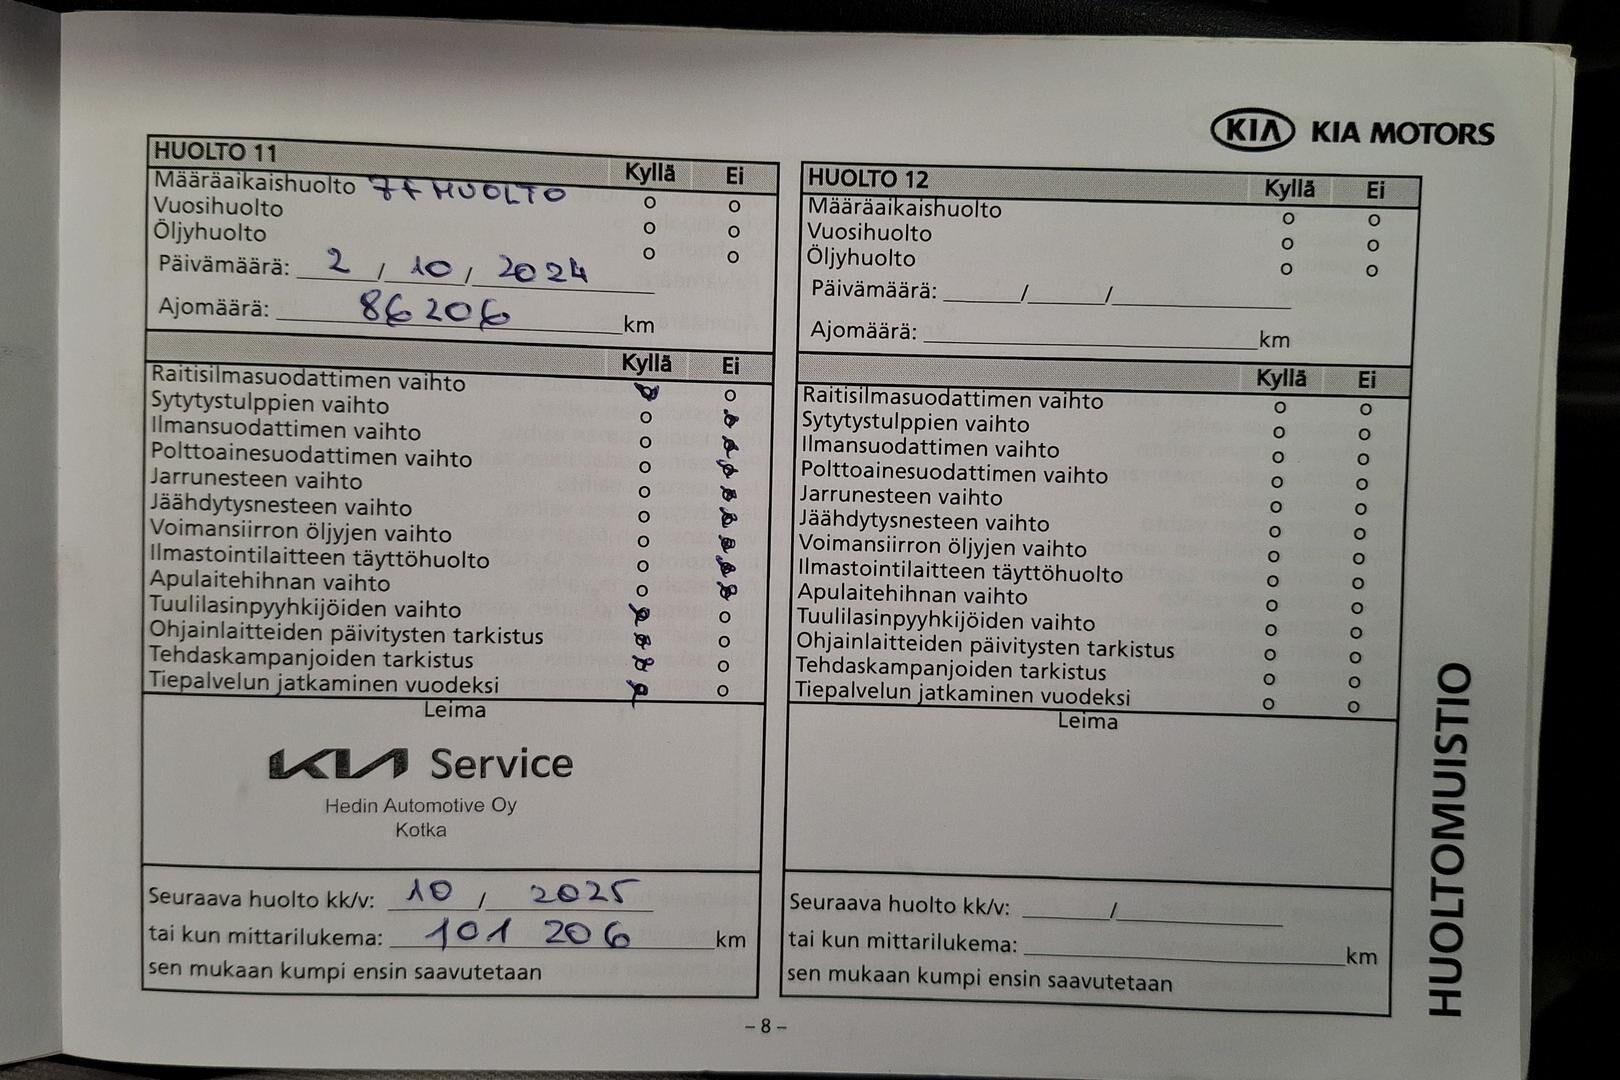 KIA KIA MOTORS
HUOLTO 11 Kyllä Ei
Määräaikaishuolto 7 HUOLTO o o
Vuosihuolto o o
Öljyhuolto o o
Päivämäärä: 2 / 10 / 2024
Ajomäärä: 86206 km
Kyllä Ei
Raitisilmasuodattimen vaihto
Sytytystulppien vaihto
Ilmansuodattimen vaihto
Polttoainesuodattimen vaihto
Jarrunesteen vaihto
Jäähdytysnesteen vaihto
Voimansiirron öljyjen vaihto
Ilmastointilaitteen täyttöhuolto
Apulaitehihnan vaihto
Tuulilasinpyyhkijöiden vaihto
Ohjainlaitteiden päivitysten tarkistus
Tehdaskampanjoiden tarkistus
Tiepalvelun jatkaminen vuodeksi
Leima
KIA Service
Hedin Automotive Oy
Kotka
Seuraava huolto kk/v: 10 / 2025
tai kun mittarilukema: 101 206 km
sen mukaan kumpi ensin saavutetaan
HUOLTO 12 Kyllä Ei
Määräaikaishuolto o o
Vuosihuolto o o
Öljyhuolto o o
Päivämäärä: / /
Ajomäärä: km
Kyllä Ei
Raitisilmasuodattimen vaihto o o
Sytytystulppien vaihto o o
Ilmansuodattimen vaihto o o
Polttoainesuodattimen vaihto o o
Jarrunesteen vaihto o o
Jäähdytysnesteen vaihto o o
Voimansiirron öljyjen vaihto o o
Ilmastointilaitteen täyttöhuolto o o
Apulaitehihnan vaihto o o
Tuulilasinpyyhkijöiden vaihto o o
Ohjainlaitteiden päivitysten tarkistus o o
Tehdaskampanjoiden tarkistus o o
Tiepalvelun jatkaminen vuodeksi o o
Leima
Seuraava huolto kk/v: /
tai kun mittarilukema: km
sen mukaan kumpi ensin saavutetaan
HUOLTOMUISTIO
– 8 –